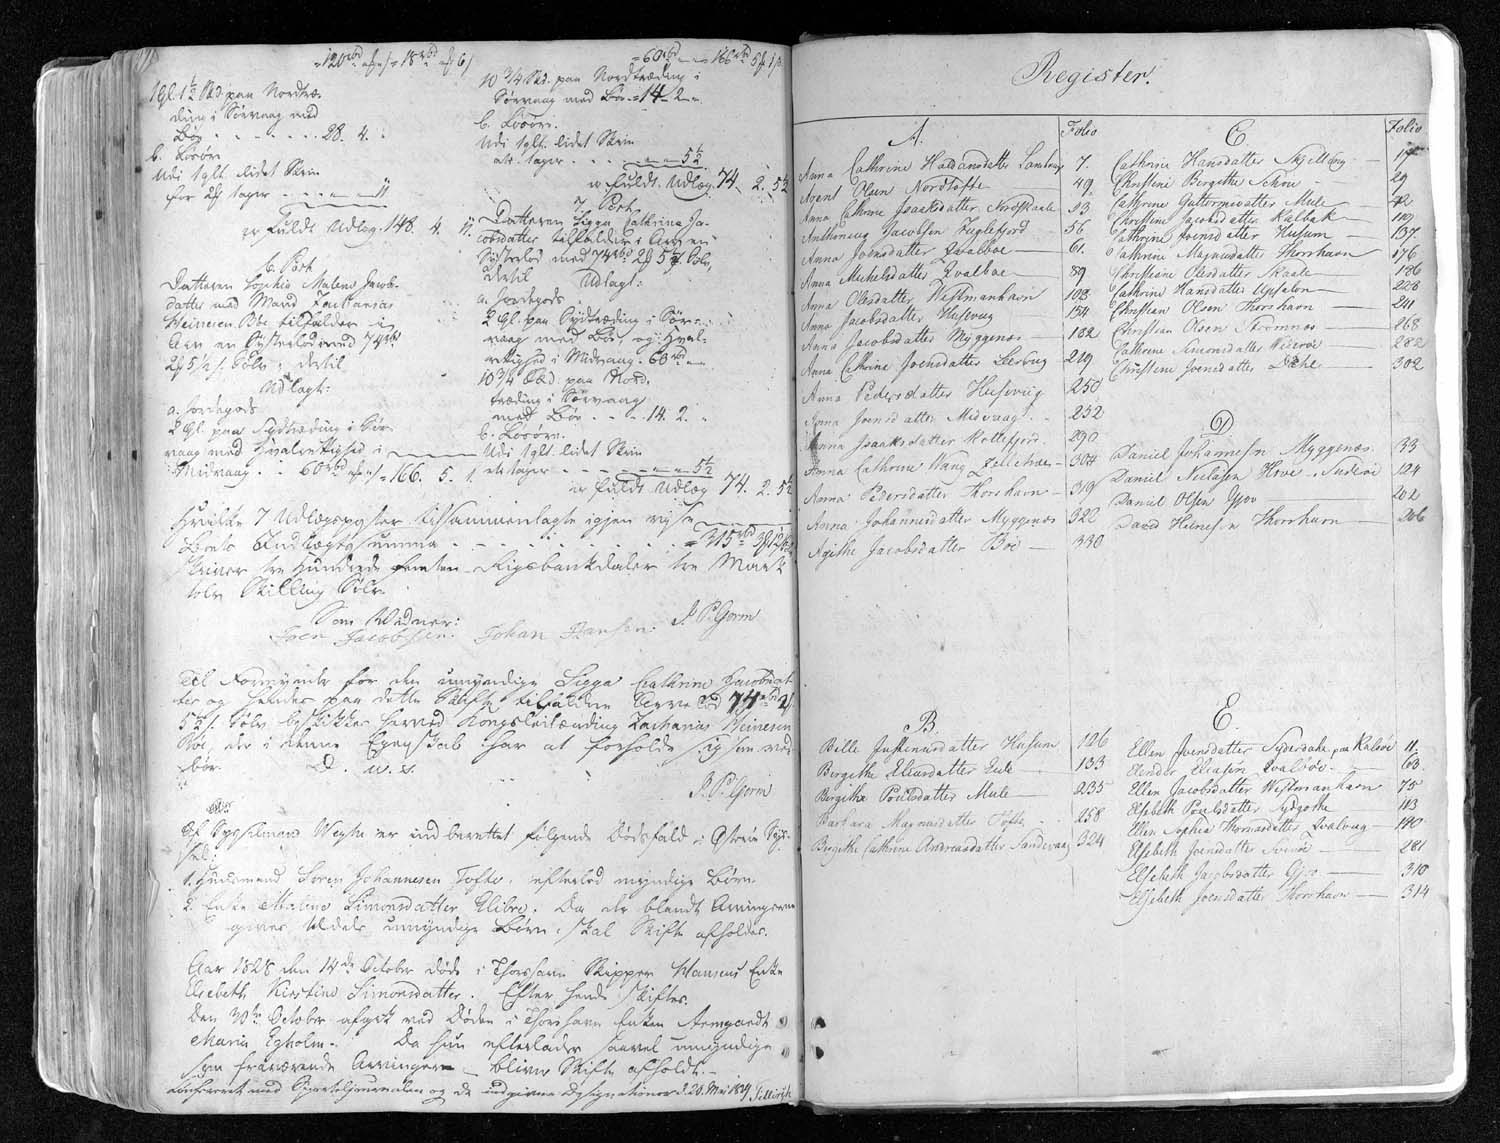 1 Gl. 1½ Skd. paa Nordtræ-
ding i Sørvaag med
Bøe - - - - - - - 28. 4.
b. Løsøre.
Udi 1 glt. lidet Skrin
for 2f tager - - - - -
er fuldt Udlæg. 148. 4.
6. Post
Datteren Sophie Malene Jacobs-
datter med Mand Zacharias
Heinesen Bøe tilfalder i
Arv en Søsterlod med 74
2f 5½ s. Sølv, dertil
Udlagt:
a. Jordegods
2 Gl. paa Sydtræding i Sør-
vaag med Hvalrettighed i
Midvaag - - 60 166. 5. 1.
10 3/4 Skd. paa Nordtræding i
Sørvaag med Bøe - 14 - 2 -
b. Løsøre.
Udi 1 glt. lidet Skrin
als. tager - - - 5½
er fuldt Udlæg. 74. 2. 5½
7. Post
Datteren Sigga Cathrina Ja-
cobsdatter tilfalder i Arv en
Søsterlod med 74 2f 5½ s. Sølv,
dertil Udlagt:
a. Jordegods
2 Gl. paa Sydtræding i Sør-
vaag med Bøe og Hval-
rettighed i Midvaag. 60
10 3/4 Skd. paa Nord-
træding i Sørvaag
med Bøe - - - 14. 2.
b. Løsøre.
Udi 1 glt. lidet Skrin
als tager - - - - 5½
er fuldt Udlæg 74. 2. 5½
Hvilke 7 Udlægsposter tilsammenlagte igjen vise
Boets Indlægts summa - - - - - 315
Skriver tre Hundrede femten Rigsbankdaler tre Mark
tolv Skilling Sølv.
Som Vidner: J. P. Gorm
Joen Jacobsen. Johan Hansen.
Til Formynder for den umyndige Sigga Cathrine Jacobsdat-
ter og hendes paa dette Skifte tilfaldne Arvelod 74 2f
5½ s. Sølv beskikkes herved Kongsleilænding Zacharias Heinesen
Bøe, der i denne Egenskab har at forholde sig som ved-
bør. D. u. s.
J. P. Gorm
Af Sysselmand Weyhe er indberettet følgende Dødsfald i Østerøe Sys-
sel:
1. Huusmand Søren Johannesen Tofte. efterlod myndige Børn.
2. Enke Malene Simonsdatter Glibre. Da der blandt Arvingerne
gives tildels umyndige Børn, skal Skifte afholdes.
Aar 1828 den 14de October døde i Thorshavn Skipper Hansens Enke
Elsebeth Kirstine Simonsdatter. Efter hende skiftes.
Den 30te October afgik ved Døden i Thorshavn Enken Armgardt
Maria Egholm. Da hun efterlader saavel umyndige
som fraværende Arvinger - bliver Skifte afholdt.
Confereret med Sportelsjournalen og de udgivne Designationer d. 20. Mai 1829 Tillisch
Register.
A. Folio
Anna Cathrine Haldansdatter 7.
Agent Olsen Nordtofte - 49.
Anna Cathrine Isaksdatter, Nordskaale 53
Anthonius Jacobsen Fuglefjord 56
Anna Joensdatter Qvalbøe - 61.
Anna Michelsdatter Qvalbøe - 89
Anna Olesdatter Westmanhavn 103
Anna Jacobsdatter Husevug 154
Anna Jacobsdatter Myggenæs - 182
Anna Cathrine Joensdatter Leervig 219
Anna Pedersdatter Husevug 250
Anna Joensdatter Midvaag - 252
Anna Isaaksdatter Kollefjord 290
Anna Cathrine Wang 304
Anna Pedersdatter Thorshavn - 319
Anna Johannesdatter Myggenæs 322
Agithe Jacobsdatter Bøe - 330
B.
Bille Justinusdatter Husum 126
Bergithe Eliasdatter Eide - 133
Bergithe Poulsdatter Mule - 235
Barbara Magnusdatter Tofte - 258
Bergithe Cathrine Andreasdatter Sandevaag 324
C Folio
Cathrine Hansdatter -
Christine Bergithe Schou - 29
Cathrine Guttormsdatter Mule - 72
Christine Jacobsdatter Kalbak - 119
Cathrine Joensdatter Husum - 137
Cathrine Magnusdatter Thorshavn 176
Christiane Olesdatter Skaale - 186
Cathrine Hansdatter Upsalon - 228
Christian Olsen Thorshavn - 241
Christian Olsen Strømnæs - 268
Cathrine Simonsdatter Wideröe - 282
Christine Joensdatter Dahl - 302
D
Daniel Johannesen Myggenæs. 33
Daniel Neilsen Hvoe. Suderøe 124
Daniel Olsen Gjov - 202
David Heinesen Thorshavn - 206
E
Ellen Joensdatter Syderdahl paa Kalsøe 11.
Elendor Eliasen Qvalbøe - 63.
Ellen Jacobsdatter Westmanhavn 75
Elsebeth Poulsdatter Sydgothe 113
Ellen Sophia Thomasdatter Qvalvug 140
Elsebeth Joensdatter Svinöe - 281
Elsebeth Jacobsdatter Gjov - 310
Elsebeth Joensdatter Thorshavn - 314